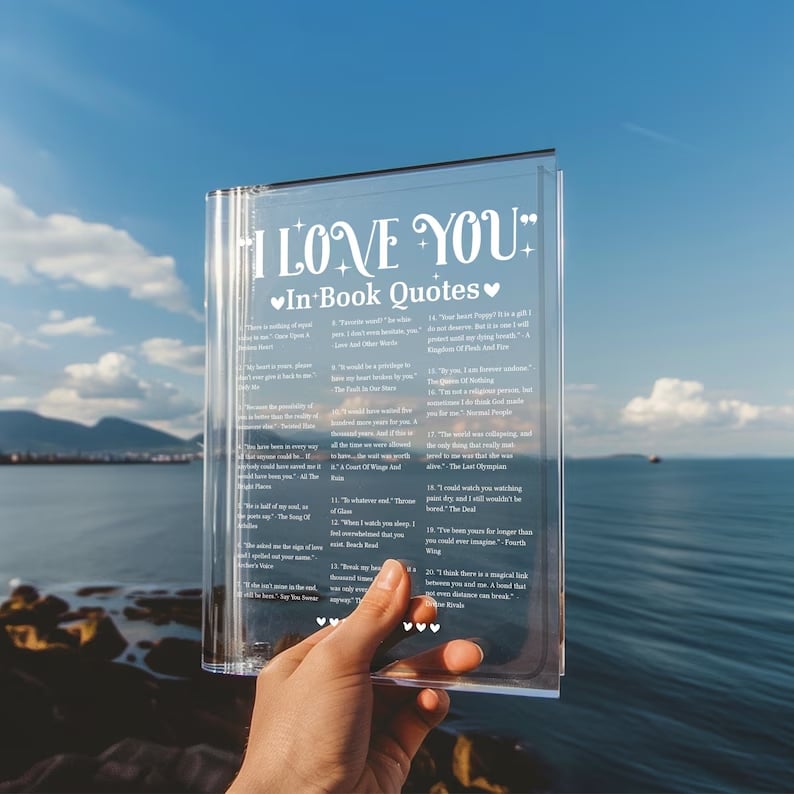 “I LOVE YOU”
In Book Quotes
1. "There is nothing of equal
value to me."- Once Upon A
Broken Heart
2. "My heart is yours, please
don't ever give it back to me."-
Defy Me
3. "Because the possibility of
you is better than the reality of
someone else." - Twisted Hate
4. "You have been in every way
all that anyone could be... If
anybody could have saved me it
would have been you." - All The
Bright Places
5. "He is half of my soul, as
the poets say."- The Song Of
Achilles
6. "She asked me the sign of love
and I spelled out your name." -
Archer's Voice
7. "If she isn't mine in the end,
I'll still be hers."- Say You Swear
8. "Favorite word? " he whis-
pers. I don't even hesitate, you."
- Love And Other Words
9. "It would be a privilege to
have my heart broken by you."
- The Fault In Our Stars
10. "I would have waited five
hundred more years for you. A
thousand years. And if this is
all the time we were allowed
to have... the wait was worth
it." A Court Of Wings And
Ruin
11. "To whatever end." Throne
of Glass
12. "When I watch you sleep. I
feel overwhelmed that you
exist. Beach Read
13. "Break my it a
thousand times
was only ever
anyway."
14. "Your heart Poppy? It is a gift I
do not deserve. But it is one I will
protect until my dying breath." - A
Kingdom Of Flesh And Fire
15. "By you, I am forever undone." -
The Queen Of Nothing
16. "I'm not a religious person, but
sometimes I do think God made
you for me."- Normal People
17. "The world was collapsing, and
the only thing that really mat-
tered to me was that she was
alive." - The Last Olympian
18. "I could watch you watching
paint dry, and I still wouldn't be
bored." The Deal
19. "I've been yours for longer than
you could ever imagine." - Fourth
Wing
20. "I think there is a magical link
between you and me. A bond that
not even distance can break." -
Divine Rivals